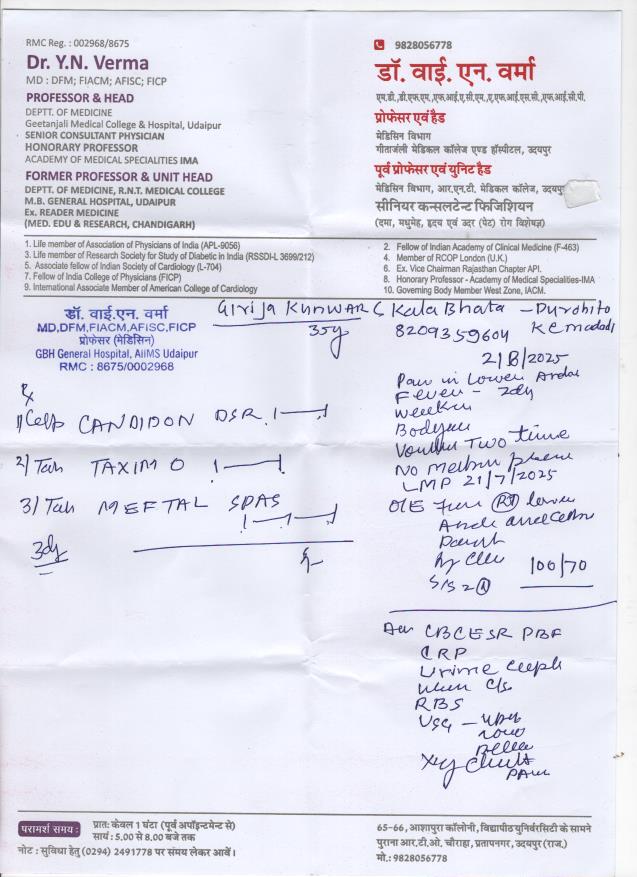 RMC Reg. : 002968/8675
Dr. Y.N. Verma
MD : DFM; FIACM; AFISC; FICP
PROFESSOR & HEAD
DEPTT. OF MEDICINE
Geetanjali Medical College & Hospital, Udaipur
SENIOR CONSULTANT PHYSICIAN
HONORARY PROFESSOR
ACADEMY OF MEDICAL SPECIALITIES IMA
FORMER PROFESSOR & UNIT HEAD
DEPTT. OF MEDICINE, R.N.T. MEDICAL COLLEGE
M.B. GENERAL HOSPITAL, UDAIPUR
Ex. READER MEDICINE
(MED. EDU & RESEARCH, CHANDIGARH)
9828056778
डॉ. वाई. एन. वर्मा
एम.डी.,डी.एफ.एम.,एफ.आई.ए.सी.एम.,ए.एफ.आई.एस.सी.,एफ.आई.सी.पी.
प्रोफेसर एवं हैड
मेडिसिन विभाग
गीतांजली मेडिकल कॉलेज एण्ड हॉस्पीटल, उदयपुर
पूर्व प्रोफेसर एवं युनिट हैड
मेडिसिन विभाग, आर.एन.टी. मेडिकल कॉलेज, उदयपु
सीनियर कन्सलटेन्ट फिजिशियन
(दमा, मधुमेह, हृदय एवं उदर (पेट) रोग विशेषज्ञ)
1. Life member of Association of Physicians of India (APL-9056)
3. Life member of Research Society for Study of Diabetic in India (RSSDI-L 3699/212)
5. Associate fellow of Indian Society of Cardiology (L-704)
7. Fellow of India College of Physicians (FICP)
9. International Associate Member of American College of Cardiology
2. Fellow of Indian Academy of Clinical Medicine (F-463)
4. Member of RCOP London (U.K.)
6. Ex. Vice Chairman Rajasthan Chapter API.
8. Honorary Professor - Academy of Medical Specialities-IMA
10. Governing Body Member West Zone, IACM.
डॉ. वाई. एन. वर्मा
MD,DFM,FIACM,AFISC,FICP
प्रोफेसर (मेडिसिन)
GBH General Hospital, AIIMS Udaipur
RMC : 8675/0002968
Girija KUNWAR C Kala Bhata
35y 8209359604
21/8/2025
Pain in Lower
Fever -
Two time
No
LMP 21/7/2025
O/E (Rt) lower
100/70
S1S2 (N)
Rx
1) Cap CANDIDON DSR 1
2) Tab TAXIM O 1
3) Tab MEFTAL SPAS
3dy
Adv CBC ESR PBF
CRP
Urine
Urine C/s
RBS
USG -
Xry Chest
परामर्श समय :
प्रात: केवल 1 घंटा (पूर्व अपॉइन्टमेन्ट से)
सायं : 5.00 से 8.00 बजे तक
नोट : सुविधा हेतु (0294) 2491778 पर संमय लेकर आवें।
65-66, आशापुरा कॉलोनी, विद्यापीठ युनिर्वरसिटी के सामने
पुराना आर.टी.ओ. चौराहा, प्रतापनगर, उदयपुर (राज.)
मो.: 9828056778